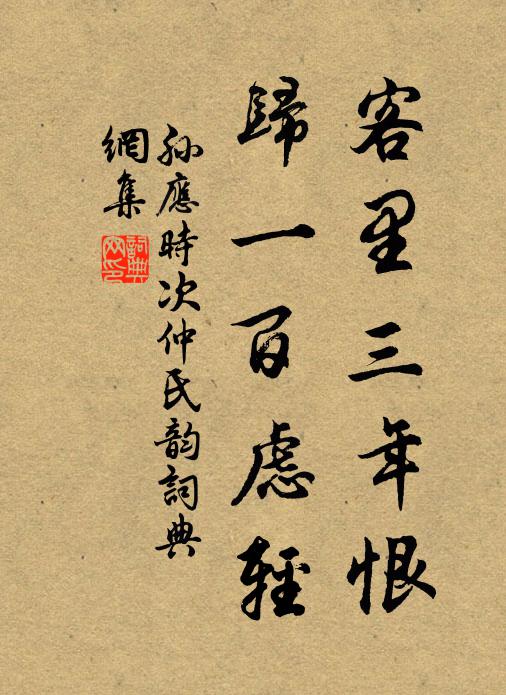 客里三年恨
歸一百慮輕
孙應時次仲氏韵詞典
網集
詞典
网印